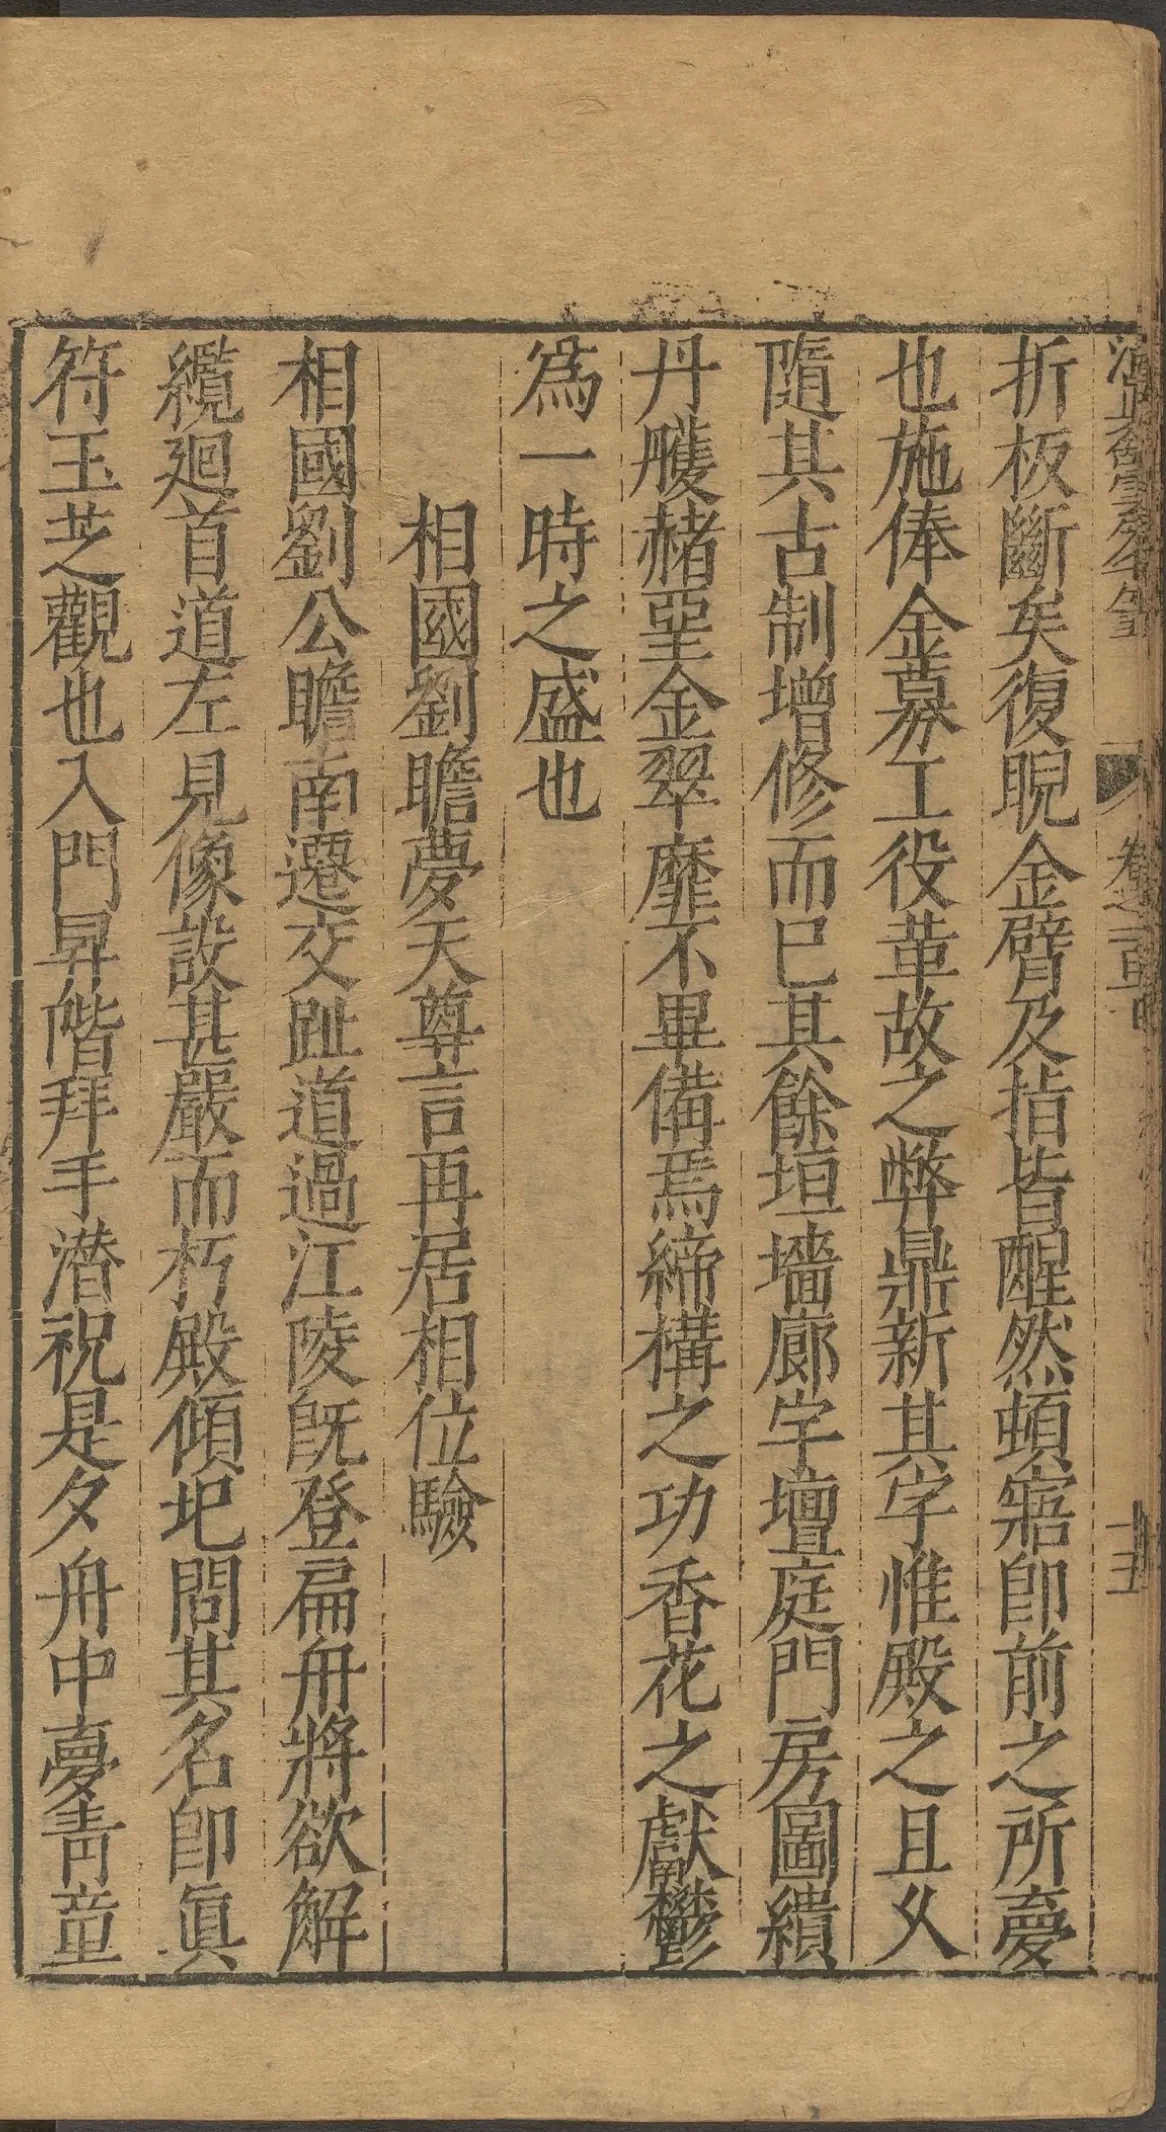 卷之一百
十五
折板斷矣復睨金臂及指皆醒然頓寤卽前之所夢
也施俸金募工役革故之弊鼎新其宇惟殿之且久
隨其古制增修而已其餘垣墻廊宇壇庭門房圖繢
丹雘赭堊金翠靡不畢備焉締構之功香花之獻鬱
爲一時之盛也
相國劉瞻夢天尊言再居相位驗
相國劉公瞻南遷交趾道過江陵旣登扁舟將欲解
纜廻首道左見像設甚嚴而朽殿傾圯問其名卽眞
符玉芝觀也入門昇階拜手潛祝是夕舟中夢青童